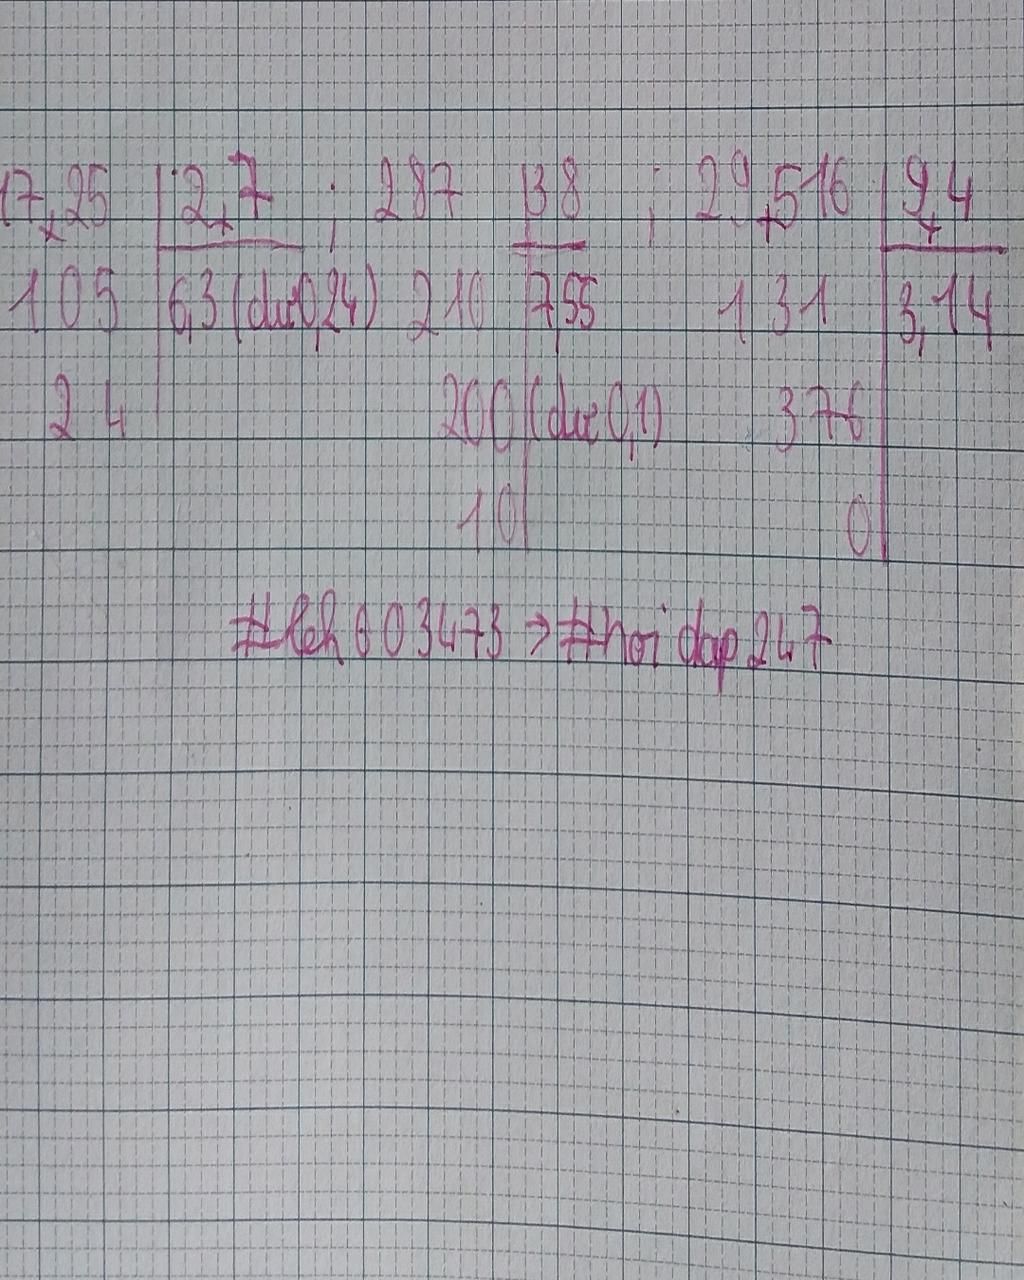 17,25 2,7 ; 287 38 ; 29,516 9,4
105 6,3 (dư 0,24) 210 7,55 131 3,14
24 200 (dư 0,1) 376
10 0